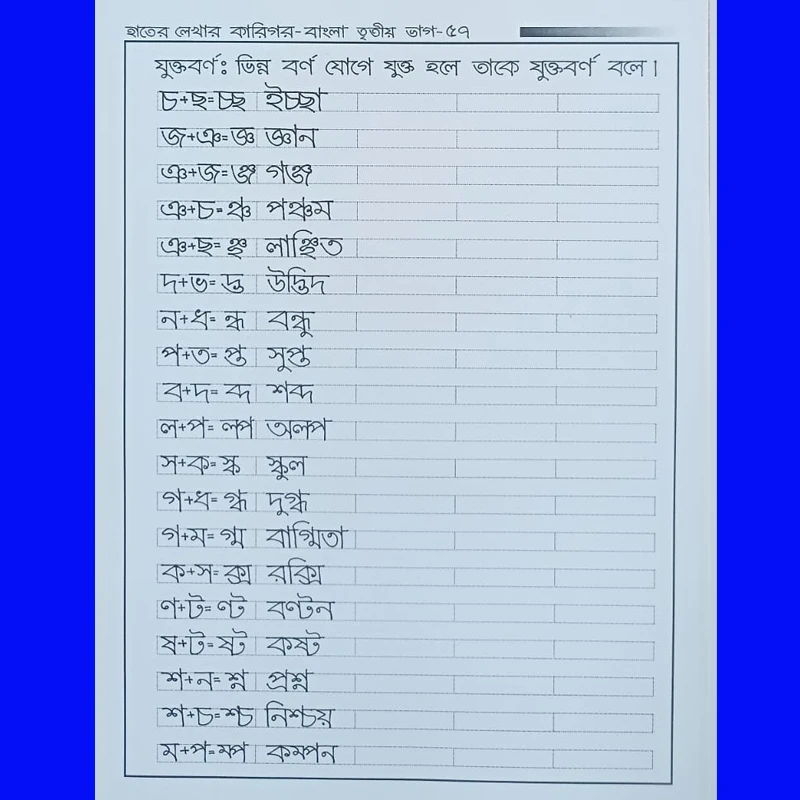 হাতের লেখার কারিগর-বাংলা তৃতীয় ভাগ-৫৭
যুক্তবর্ণঃ ভিন্ন বর্ণ যোগে যুক্ত হলে তাকে যুক্তবর্ণ বলে।
চ+ছ=চ্ছ ইচ্ছা
জ+ঞ=জ্ঞ জ্ঞান
ঞ+জ=ঞ্জ গঞ্জ
ঞ+চ=ঞ্চ পঞ্চম
ঞ+ছ=ঞ্ছ লাঞ্ছিত
দ+ভ=দ্ভ উদ্ভিদ
ন+ধ=ন্ধ বন্ধু
প+ত=প্ত সুপ্ত
ব+দ=ব্দ শব্দ
ল+প=ল্প অল্প
স+ক=স্ক স্কুল
গ+ধ=গ্ধ দুগ্ধ
গ+ম=গ্ম বাগ্মিতা
ক+স=ক্স রক্সি
ণ+ট=ণ্ট বণ্টন
ষ+ট=ষ্ট কষ্ট
শ+ন=শ্ন প্রশ্ন
শ+চ=শ্চ নিশ্চয়
ম+প=ম্প কম্পন